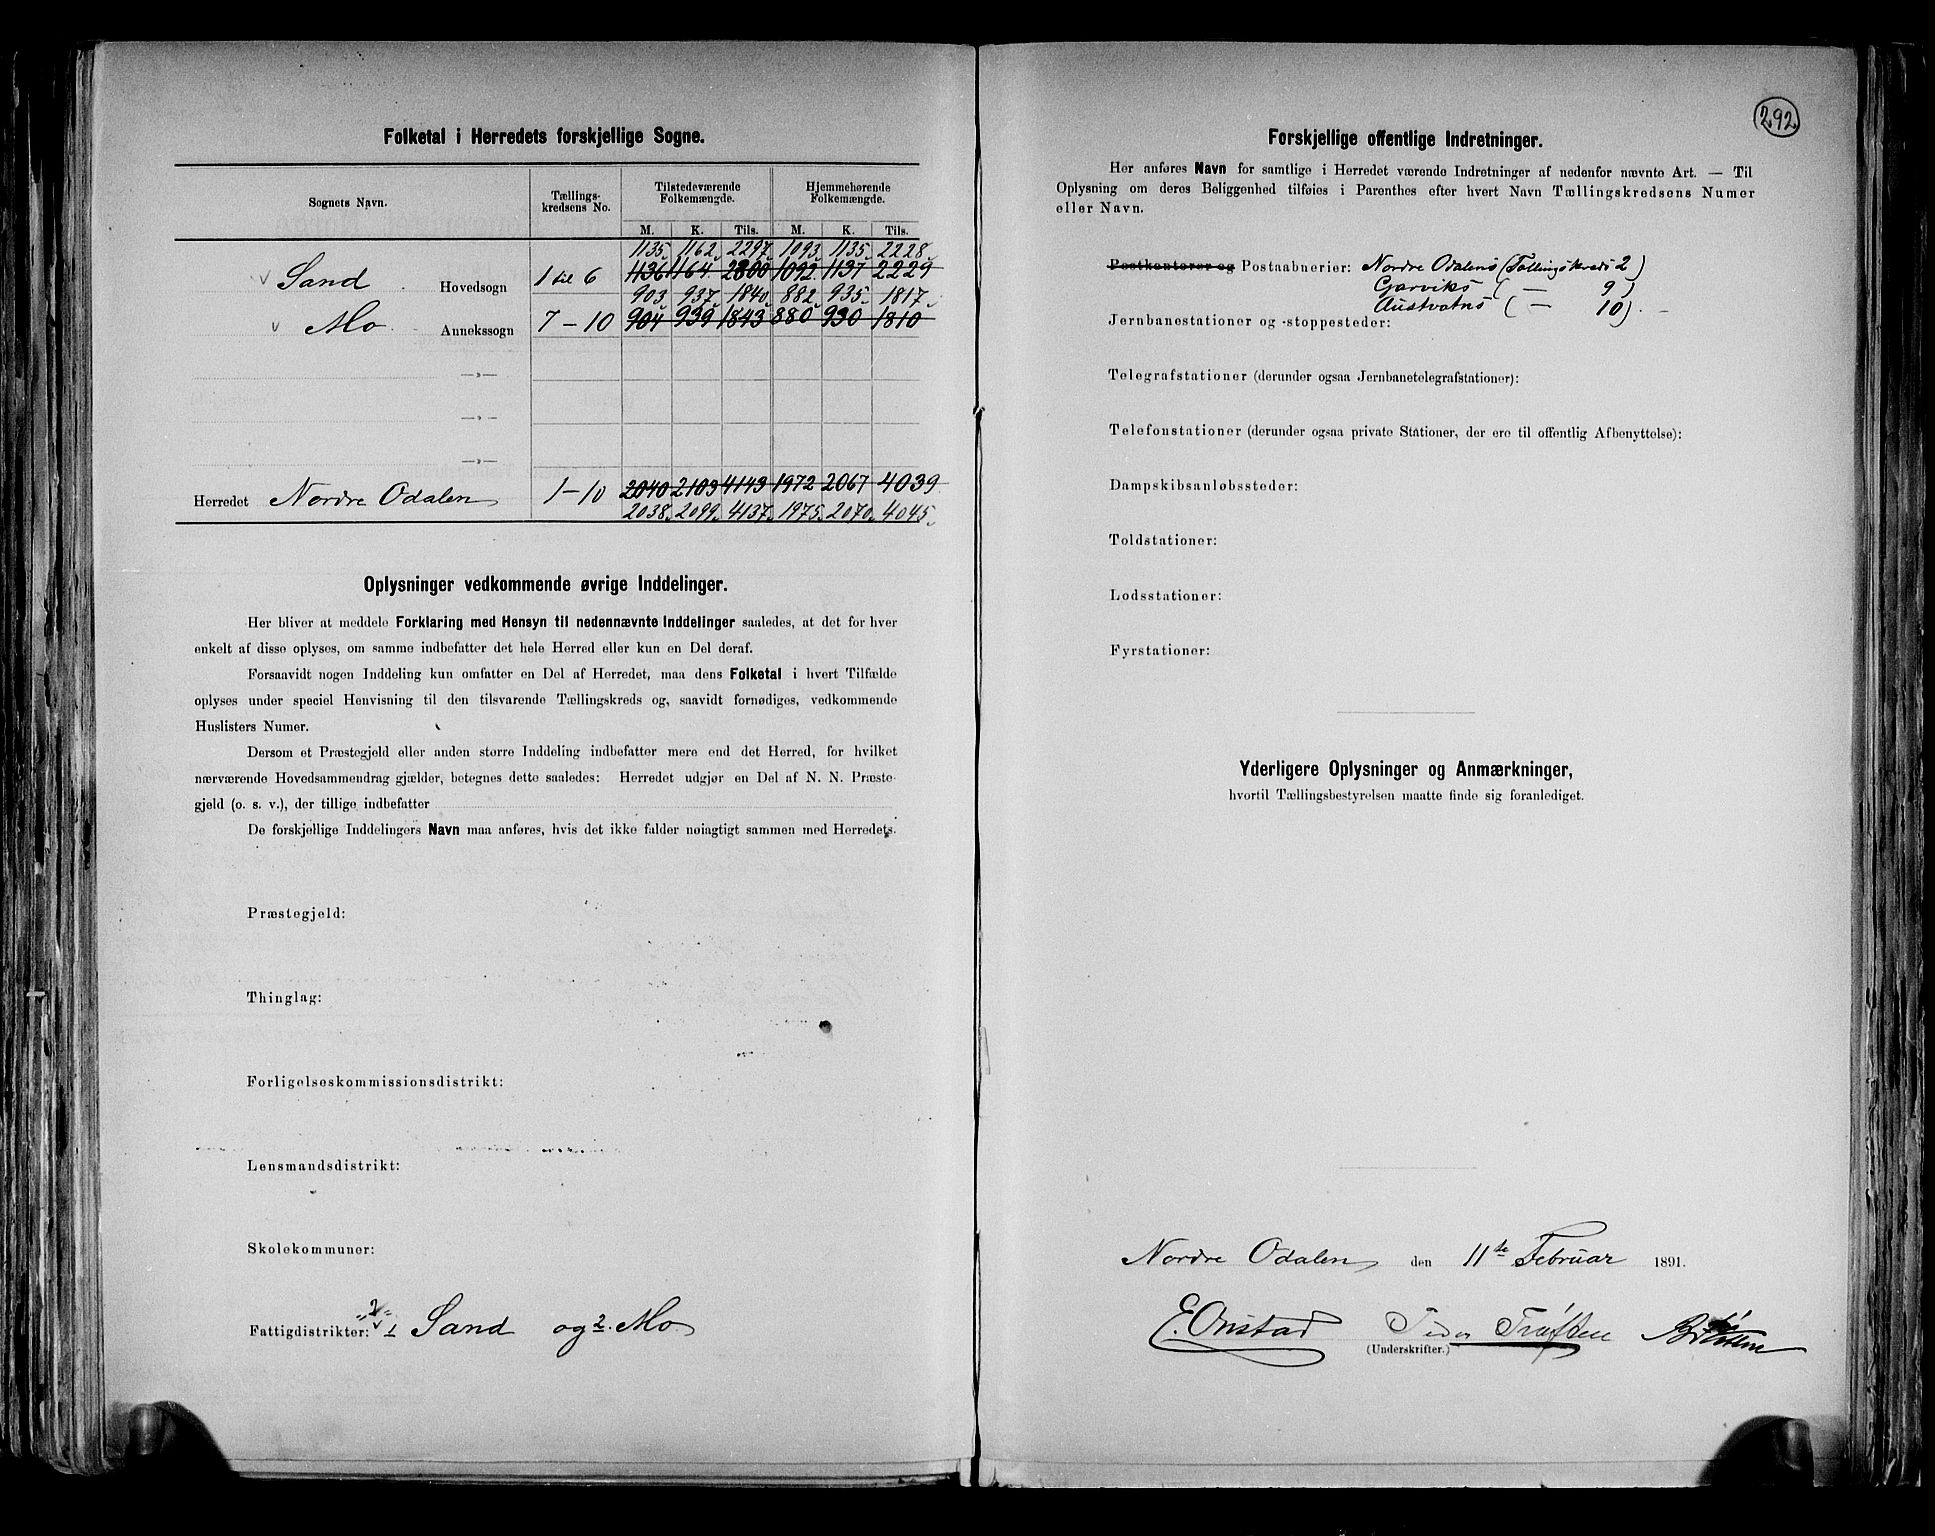 Folketal i Herredets forskjellige Sogne.
Sognets Navn. Tællings-kredsens No. Tilstedeværende Folkemængde. Hjemmehørende Folkemængde.
M. K. Tils. M. K. Tils.
1135 1162 2297 1093 1135 2228
Sand Hovedsogn 1 til 6 1136 1164 2300 1092 1137 2229
903 937 1840 882 935 1817
Mo Annekssogn 7-10 904 939 1843 880 930 1810
—»—
—»—
—»—
Herredet Nordre Odalen 1-10 2040 2103 4143 1972 2067 4039
2038 2099 4137 1975 2070 4045
Oplysninger vedkommende øvrige Inddelinger.
Her bliver at meddele Forklaring med Hensyn til nedennævnte Inddelinger saaledes, at det for hver
enkelt af disse oplyses, om samme indbefatter det hele Herred eller kun en Del deraf.
Forsaavidt nogen Inddeling kun omfatter en Del af Herredet, maa dens Folketal i hvert Tilfælde
oplyses under speciel Henvisning til den tilsvarende Tællingskreds og, saavidt fornødiges, vedkommende
Huslisters Numer.
Dersom et Præstegjeld eller anden større Inddeling indbefatter mere end det Herred, for hvilket
nærværende Hovedsammendrag gjælder, betegnes dette saaledes: Herredet udgjør en Del af N. N. Præste-
gjeld (o. s. v.), der tillige indbefatter
De forskjellige Inddelingers Navn maa anføres, hvis det ikke falder nøiagtigt sammen med Herredets.
Præstegjeld:
Thinglag:
Forligelseskommissionsdistrikt:
Lensmandsdistrikt:
Skolekommuner:
Fattigdistrikter: 1 Sand og 2. Mo
292
Forskjellige offentlige Indretninger.
Her anføres Navn for samtlige i Herredet værende Indretninger af nedenfor nævnte Art. — Til
Oplysning om deres Beliggenhed tilføies i Parenthes efter hvert Navn Tællingskredsens Numer
eller Navn.
Postkontorer og Postaabnerier: Nordre Odalens (Tællingskreds 2)
Garviks ( — 9)
Austvatns ( — 10).
Jernbanestationer og -stoppesteder:
Telegrafstationer (derunder ogsaa Jernbanetelegrafstationer):
Telefonstationer (derunder ogsaa private Stationer, der ere til offentlig Afbenyttelse):
Dampskibsanløbssteder:
Toldstationer:
Lodsstationer:
Fyrstationer:
Yderligere Oplysninger og Anmærkninger,
hvortil Tællingsbestyrelsen maatte finde sig foranlediget.
Nordre Odalen den 11te Februar 1891.
E. Onstad
(Underskrifter.)